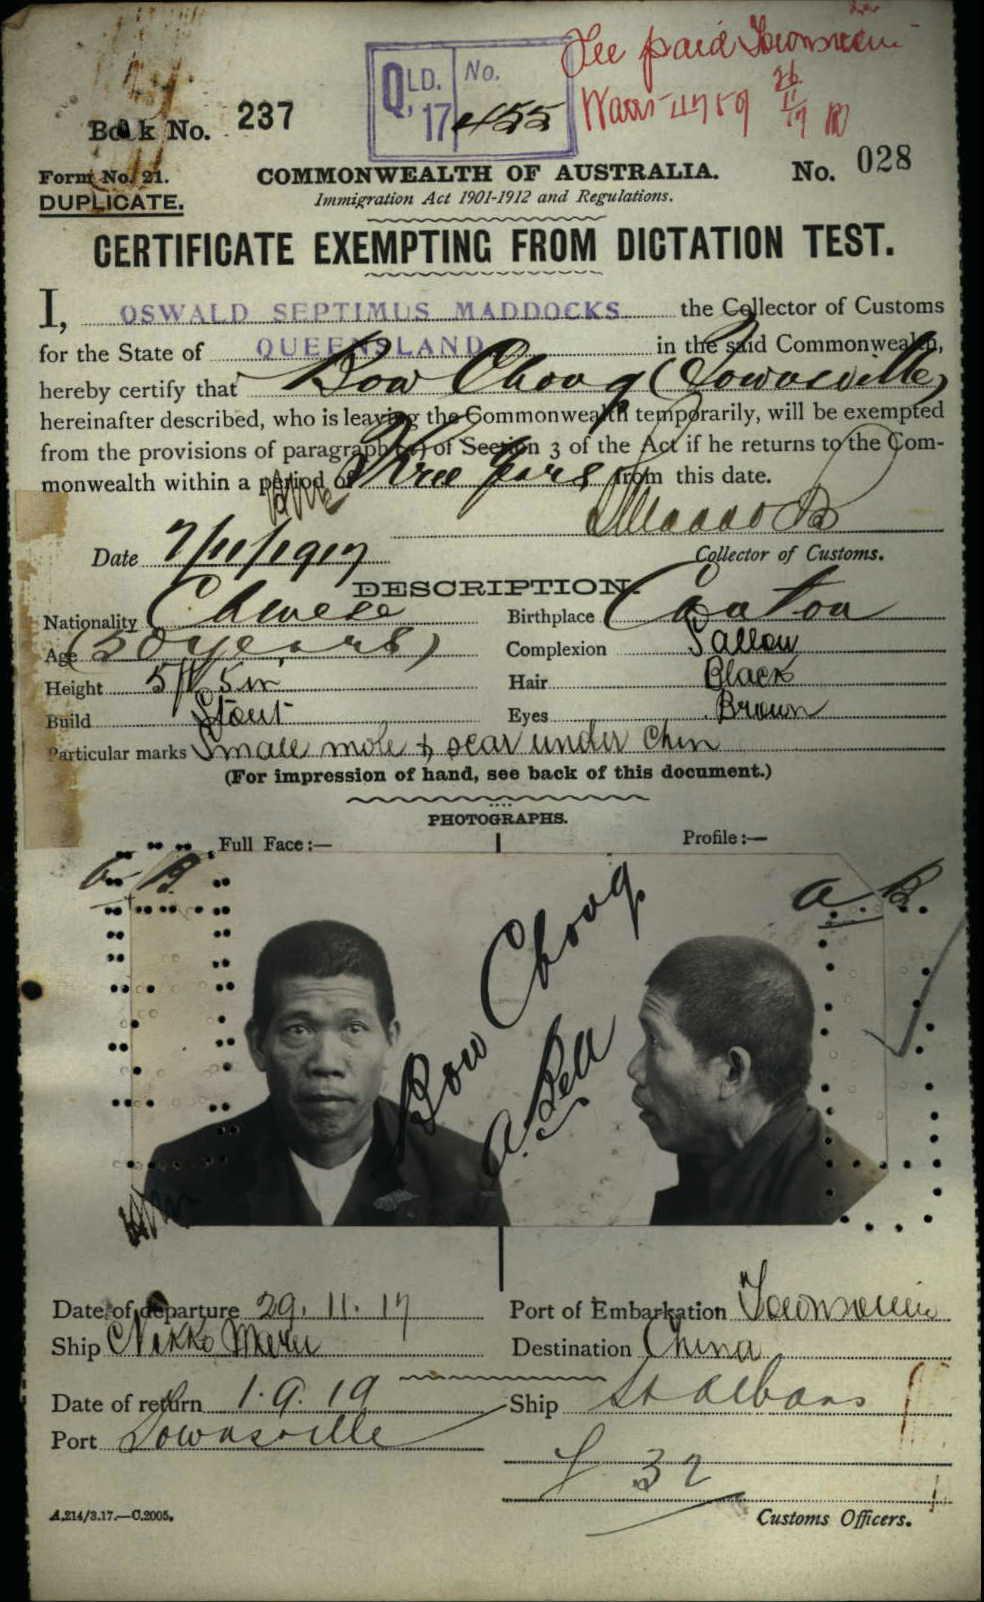 Fee paid Townsville
QLD. No.
17 455
Book No. 237
26
11
17
Form No. 21.
COMMONWEALTH OF AUSTRALIA.
No. 028
DUPLICATE.
Immigration Act 1901-1912 and Regulations.
CERTIFICATE EXEMPTING FROM DICTATION TEST.
I, OSWALD SEPTIMUS MADDOCKS the Collector of Customs
for the State of QUEENSLAND in the said Commonwealth,
hereby certify that Bow Choog (Townsville)
hereinafter described, who is leaving the Commonwealth temporarily, will be exempted
from the provisions of paragraph (a) of Section 3 of the Act if he returns to the Com-
monwealth within a period of Three Years from this date.
Date 7/11/1917
Collector of Customs.
DESCRIPTION.
Nationality Chinese Birthplace Canton
Age (50 years) Complexion Sallow
Height 5ft 5in Hair Black
Build Stout Eyes Brown
Particular marks Small mole & scar under chin
(For impression of hand, see back of this document.)
PHOTOGRAPHS.
Full Face:— Profile:—
a. B. a. B.
Bow Choog
A. Bell
Date of departure 29.11.17 Port of Embarkation Townsville
Ship Nikko Maru Destination China
Date of return 1.9.19 Ship St Albans
Port Townsville
32
A.214/3.17.—C.2005. Customs Officers.